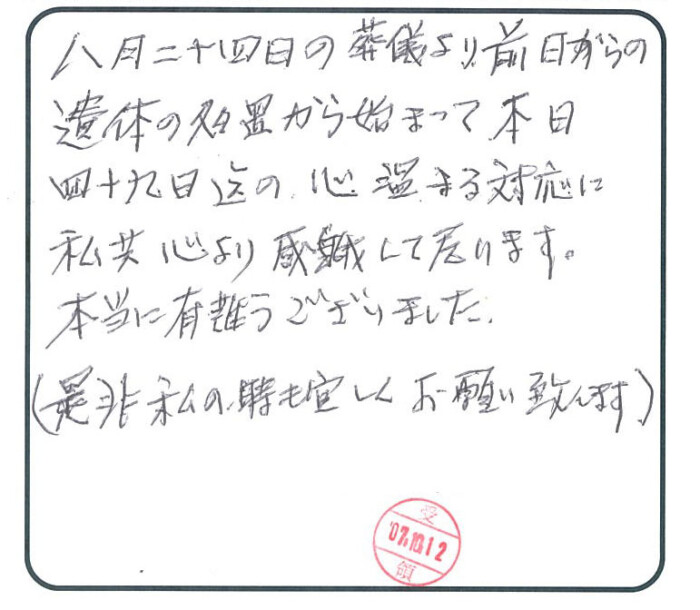 八月二十四日の葬儀より前日からの
遺体の処置から始まって本日
四十九日迄の、心温まる対応に
私共心より感謝して居ります。
本当に有難うございました。
(是非私の時も宜しくお願い致します)
受
'07.10.12
領